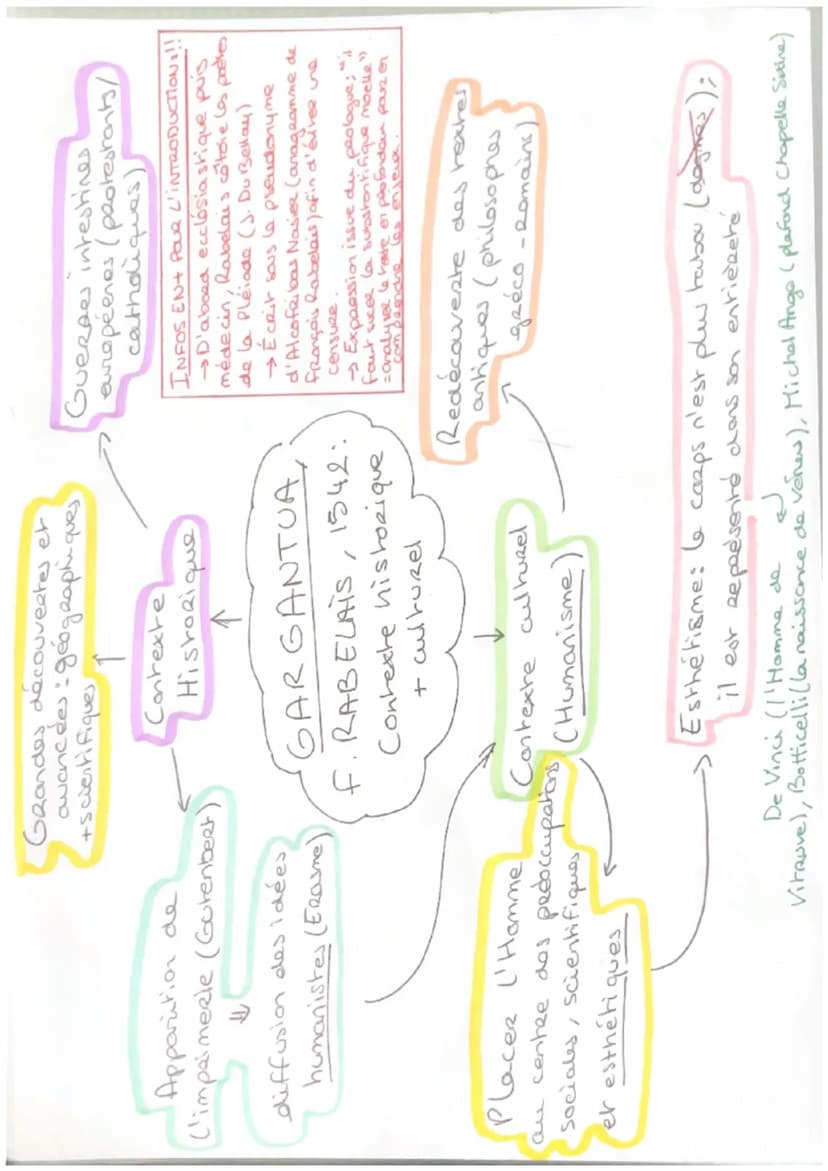 GARGANTUA,
F. RABELAIS, 1542:
Contexte historique
+ culturel
Contexte
Historique
Apparition de
l'imprimerie (Gutenbert)
⇓
diffusion des idées
humanistes (Erasme)
Grandes découvertes et
avancées : géographiques
+ scientifiques
Guerres intestines
européenes (protestants/
catholiques)
INFOS EN + POUR L'INTRODUCTION :!!!
→ D'abord ecclésiastique puis
médecin, Rabelais côtoie les poètes
de la Pléiade (J. Du Bellay)
→ Écrit sous le pseudonyme
d'Alcofribas Nasier (anagramme de
François Rabelais) afin d'éviter une
censure.
→ Expression issue du prologue : "il
faut sucer la substantifique moelle"
= analyser le texte en profondeur pour en
comprendre les enjeux.
Contexte culturel
(Humanisme)
Redécouverte des textes
antiques (philosophes
gréco-romains)
Placer l'Homme
au centre des préoccupations
sociales, scientifiques
et esthétiques
Esthétisme : le corps n'est plus tabou (dogmes) ;
il est représenté dans son entièreté
De Vinci (l'Homme de
Vitruve), Botticelli (la naissance de vénus), Michel Ange (plafond Chapelle Sixtine)